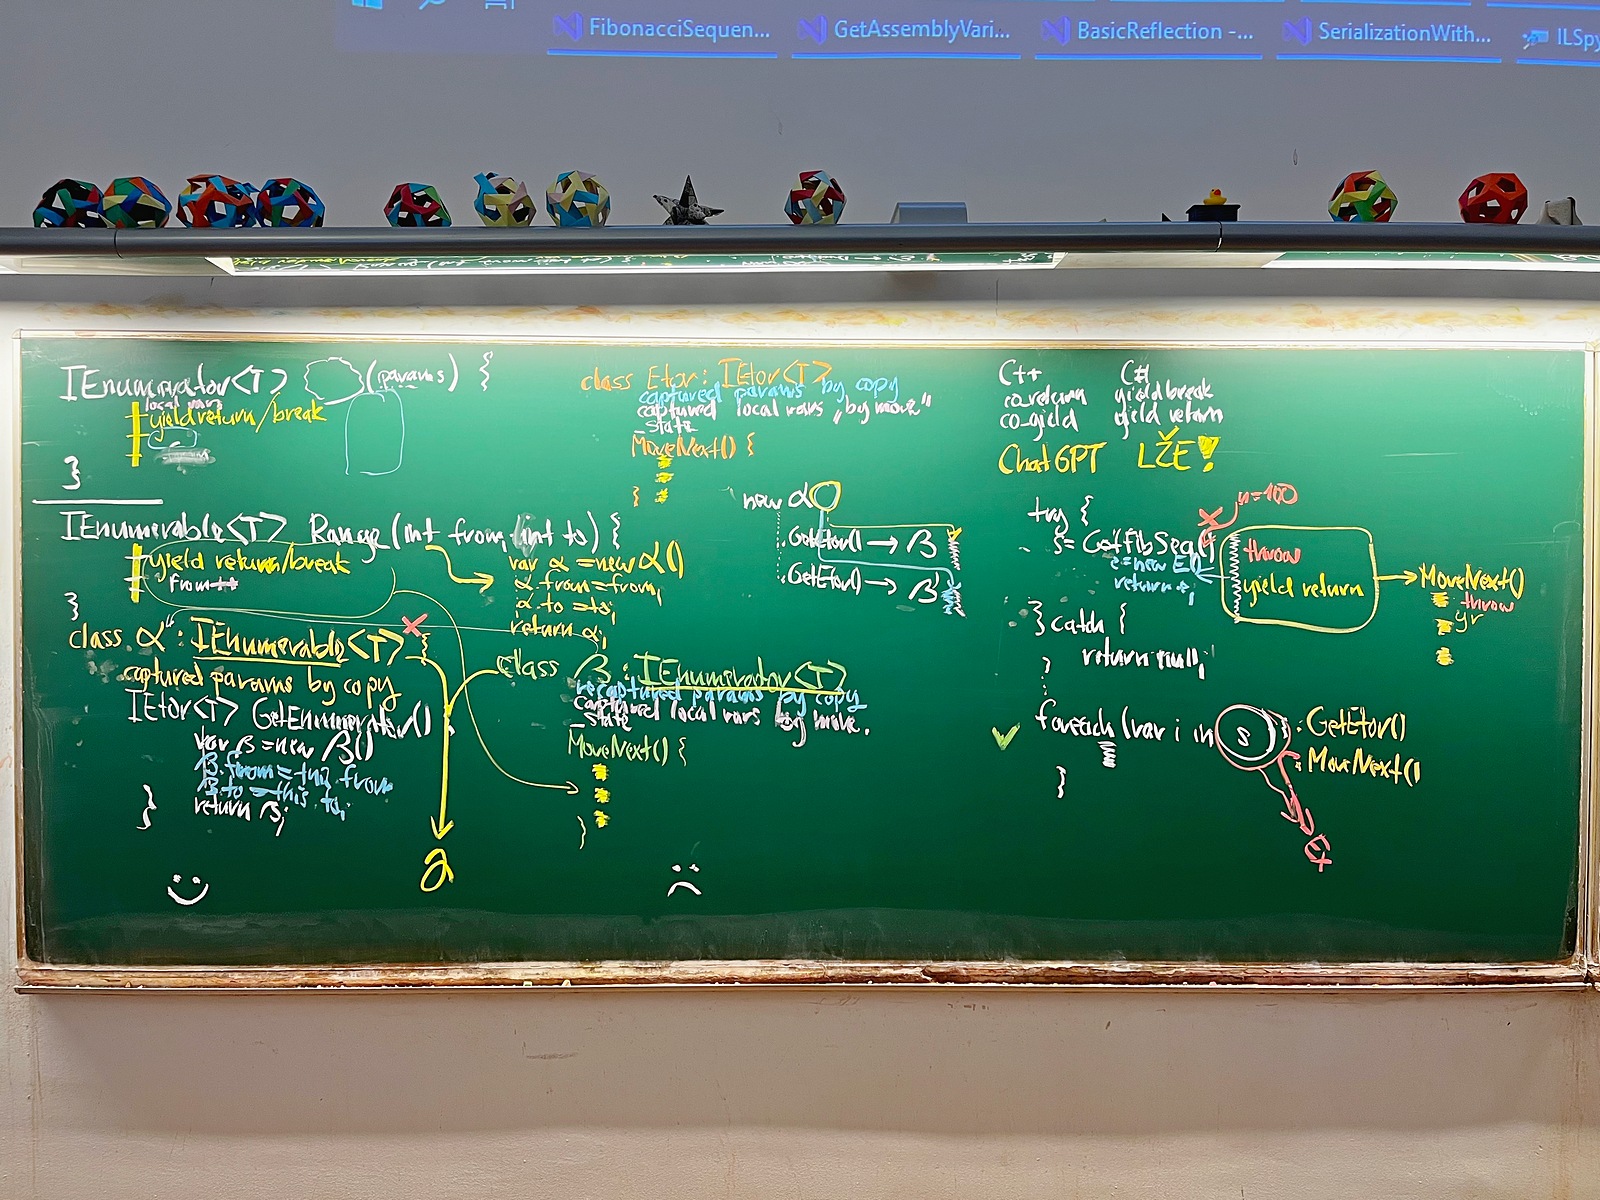 FibonacciSequen...
GetAssemblyVari...
BasicReflection -...
SerializationWith...
ILSpy
IEnumerator<T> (params) {
local vars
yield return/break
}
IEnumerable<T> Range(int from, int to) {
yield return/break
from++
}
var α = new α()
α.from=from;
α.to =to;
return α;
class α : IEnumerable<T> {
captured params by copy
IEtor<T> GetEnumerator()
var β = new β()
β.from = this.from
β.to = this.to;
return β;
}
2
class Etor : IEtor<T>
captured params by copy
captured local vars „by move"
_state
MoveNext() {
}
new α
.GetEtor() → β
.GetEtor() → β
class β : IEnumerator<T>
recaptured params by copy
captured local vars by move.
_state
MoveNext() {
}
C++ C#
co_return yield break
co_yield yield return
ChatGPT LŽE!
try {
n=-100
s= GetFibSeq()
return
} catch {
return null;
throw
yield return
MoveNext()
throw
yr
foreach (var i in s) :
}
.GetEtor()
.MoveNext()
Ex